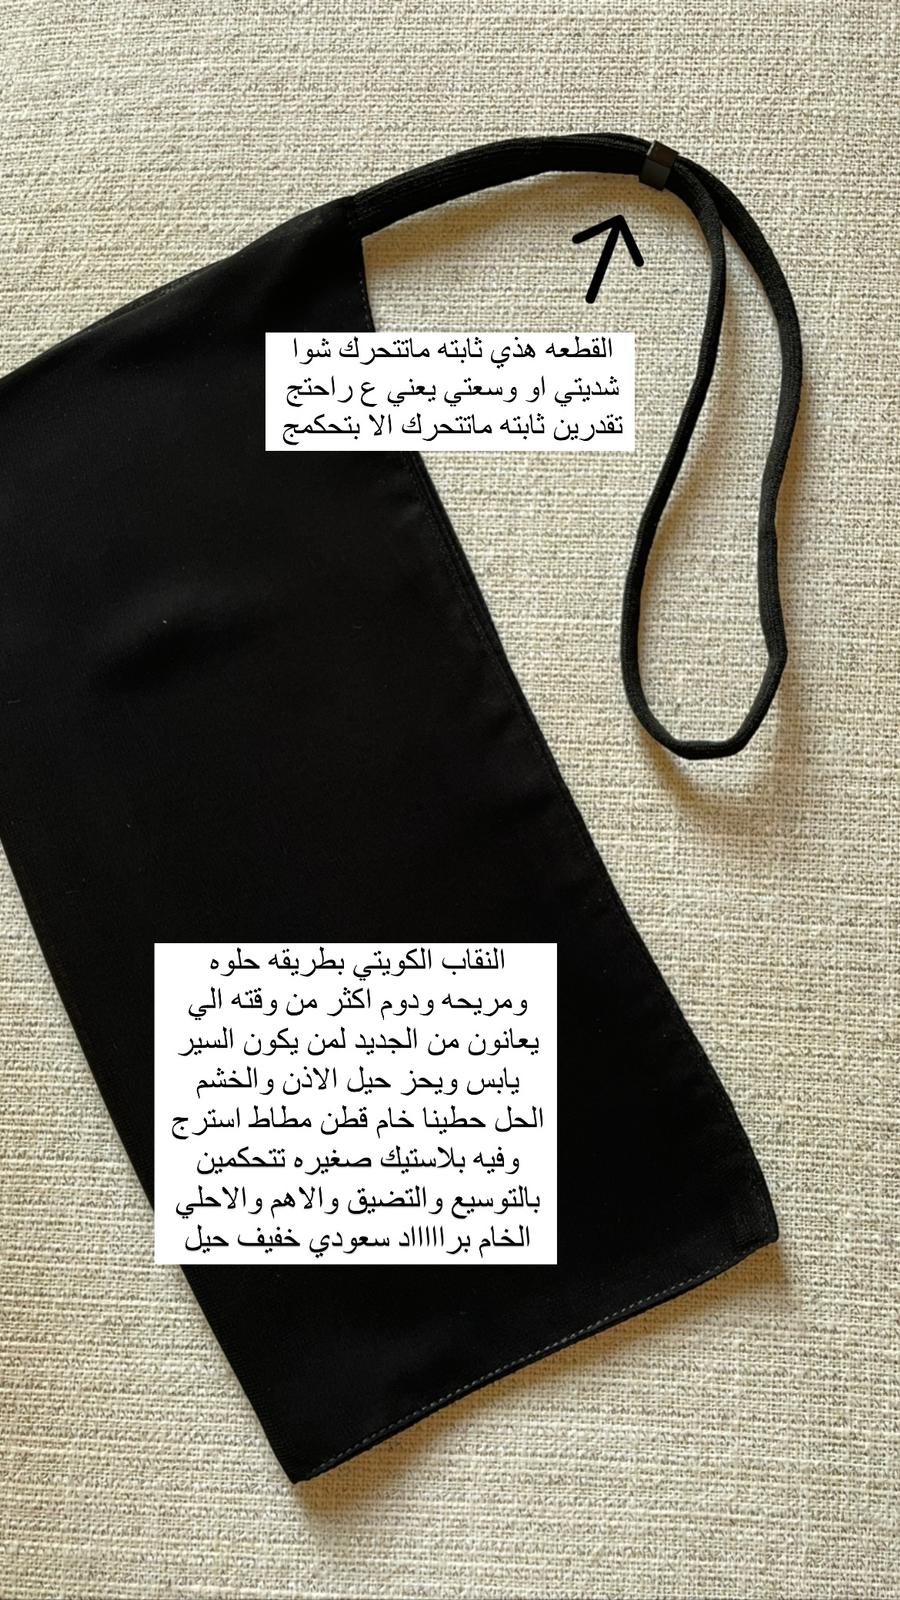 القطعه هذي ثابته ماتتحرك شوا
شديتي او وسعتي يعني ع راحتج
تقدرين ثابته ماتتحرك الا بتحكمج
النقاب الكويتي بطريقه حلوه
ومريحه ودوم اكثر من وقته الي
يعانون من الجديد لمن يكون السير
يابس ويحز حيل الاذن والخشم
الحل حطينا خام قطن مطاط استرج
وفيه بلاستيك صغيره تتحكمين
بالتوسيع والتضيق والاهم والاحلي
الخام براااااد سعودي خفيف حيل